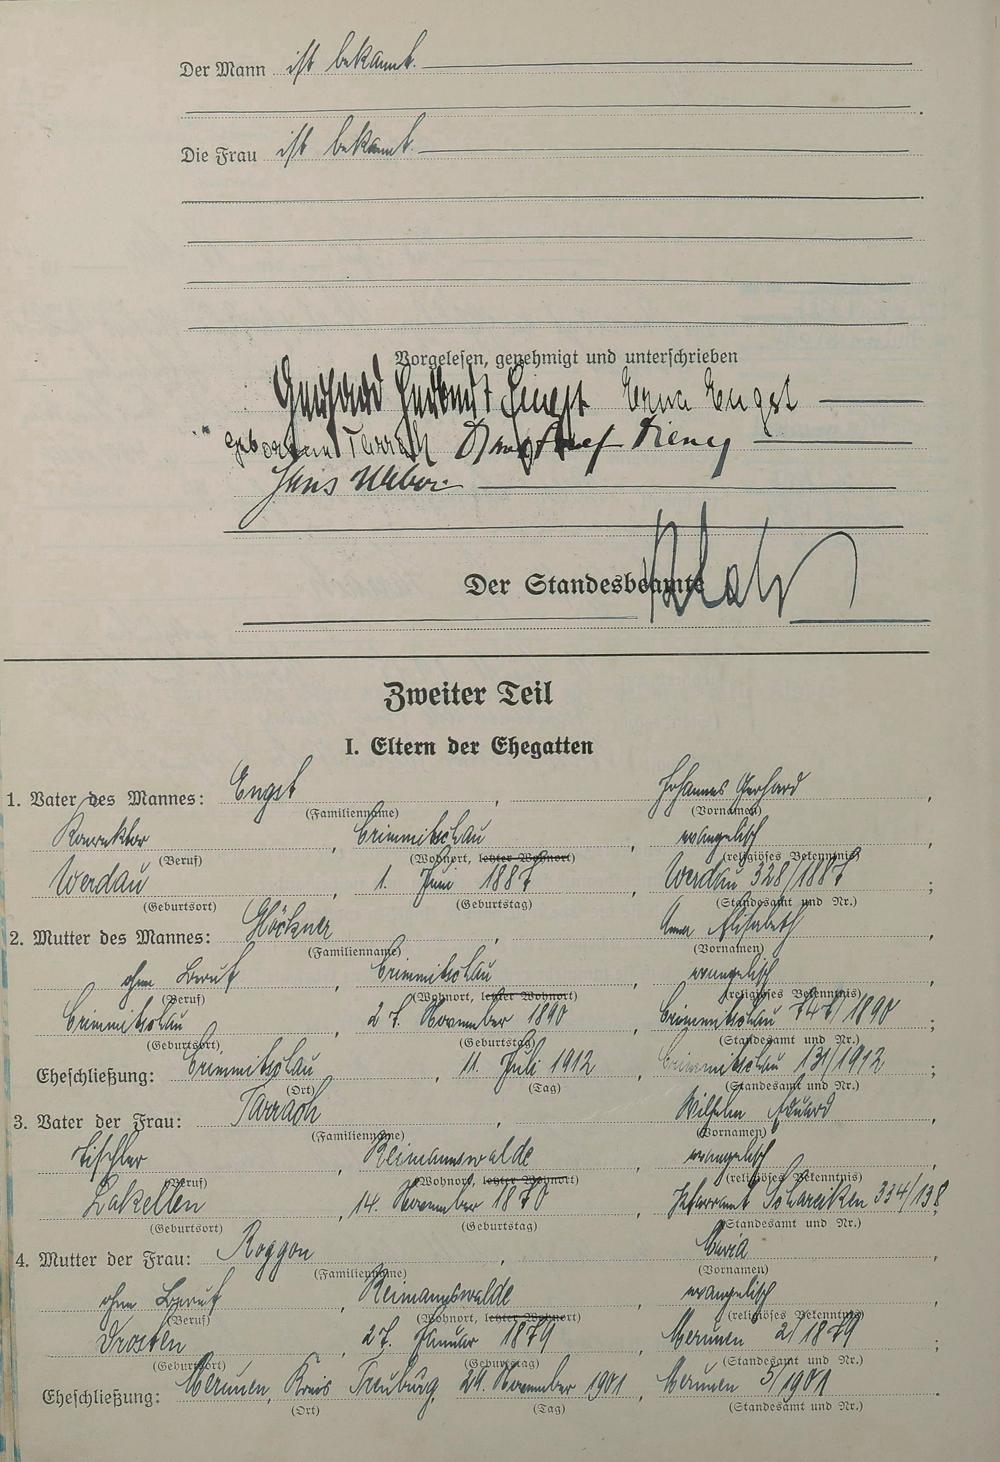 Der Mann ist bekannt.
Die Frau ist bekannt.
Vorgelesen, genehmigt und unterschrieben
Gerhard Herbert Engst Erna Engst
geborene Tarrach Josef
Hans Weber
Der Standesbeamte
Zweiter Teil
I. Eltern der Ehegatten
1. Vater des Mannes: Engst, Johannes Gerhard,
(Familienname) (Vornamen)
Konrektor, Crimmitschau, evangelisch
(Beruf) (Wohnort, letzter Wohnort) (religiöses Bekenntnis)
Werdau, 1. Juni 1887, Werdau 328/1887;
(Geburtsort) (Geburtstag) (Standesamt und Nr.)
2. Mutter des Mannes: Glöckner, Anna Elisabeth,
(Familienname) (Vornamen)
ohne Beruf, Crimmitschau, evangelisch
(Beruf) (Wohnort, letzter Wohnort) (religiöses Bekenntnis)
Crimmitschau, 27. November 1890, Crimmitschau 747/1890;
(Geburtsort) (Geburtstag) (Standesamt und Nr.)
Eheschließung: Crimmitschau, 11. Juli 1912, Crimmitschau 131/1912;
(Ort) (Tag) (Standesamt und Nr.)
3. Vater der Frau: Tarrach, Wilhelm Eduard,
(Familienname) (Vornamen)
Tischler, Reimannswalde, evangelisch,
(Beruf) (Wohnort, letzter Wohnort) (religiöses Bekenntnis)
Lakellen, 14. November 1870, Pfarramt Schareiken 334/138;
(Geburtsort) (Geburtstag) (Standesamt und Nr.)
4. Mutter der Frau: Roggon, Maria,
(Familienname) (Vornamen)
ohne Beruf, Reimannswalde, evangelisch,
(Beruf) (Wohnort, letzter Wohnort) (religiöses Bekenntnis)
Drosten, 27. Januar 1879, Merunen 2/1879;
(Geburtsort) (Geburtstag) (Standesamt und Nr.)
Eheschließung: Merunen, Kreis Treuburg, 24. November 1901, Merunen 5/1901.
(Ort) (Tag) (Standesamt und Nr.)